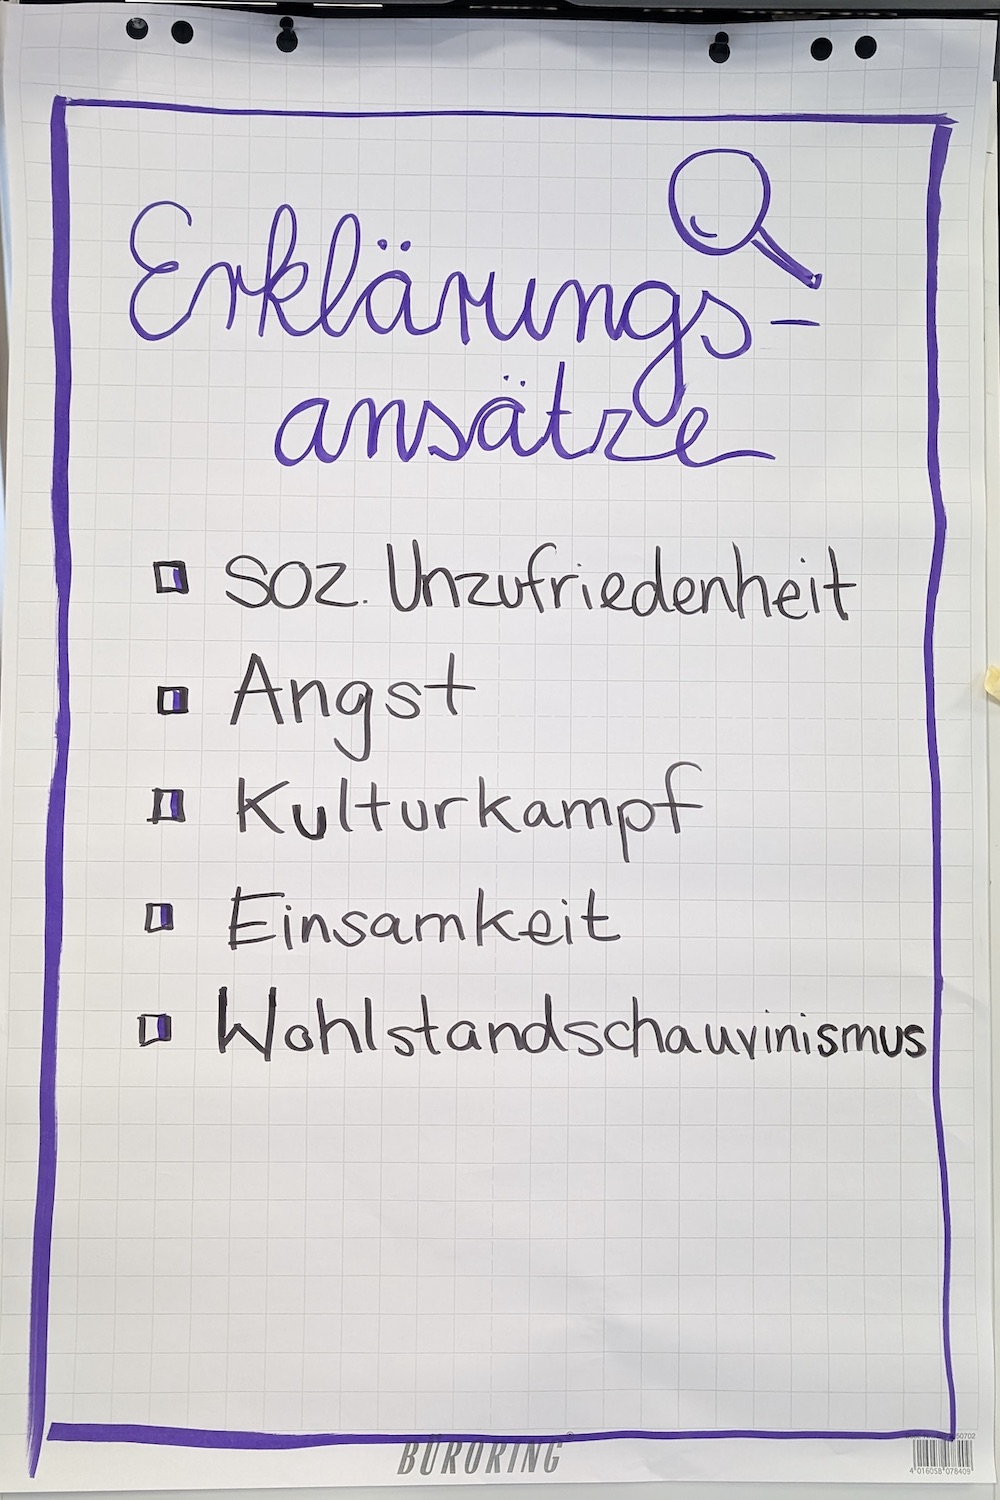 Erklärungs-
ansätze
soz. Unzufriedenheit
Angst
Kulturkampf
Einsamkeit
Wohlstandschauvinismus
BÜRORING
4 016058 078409